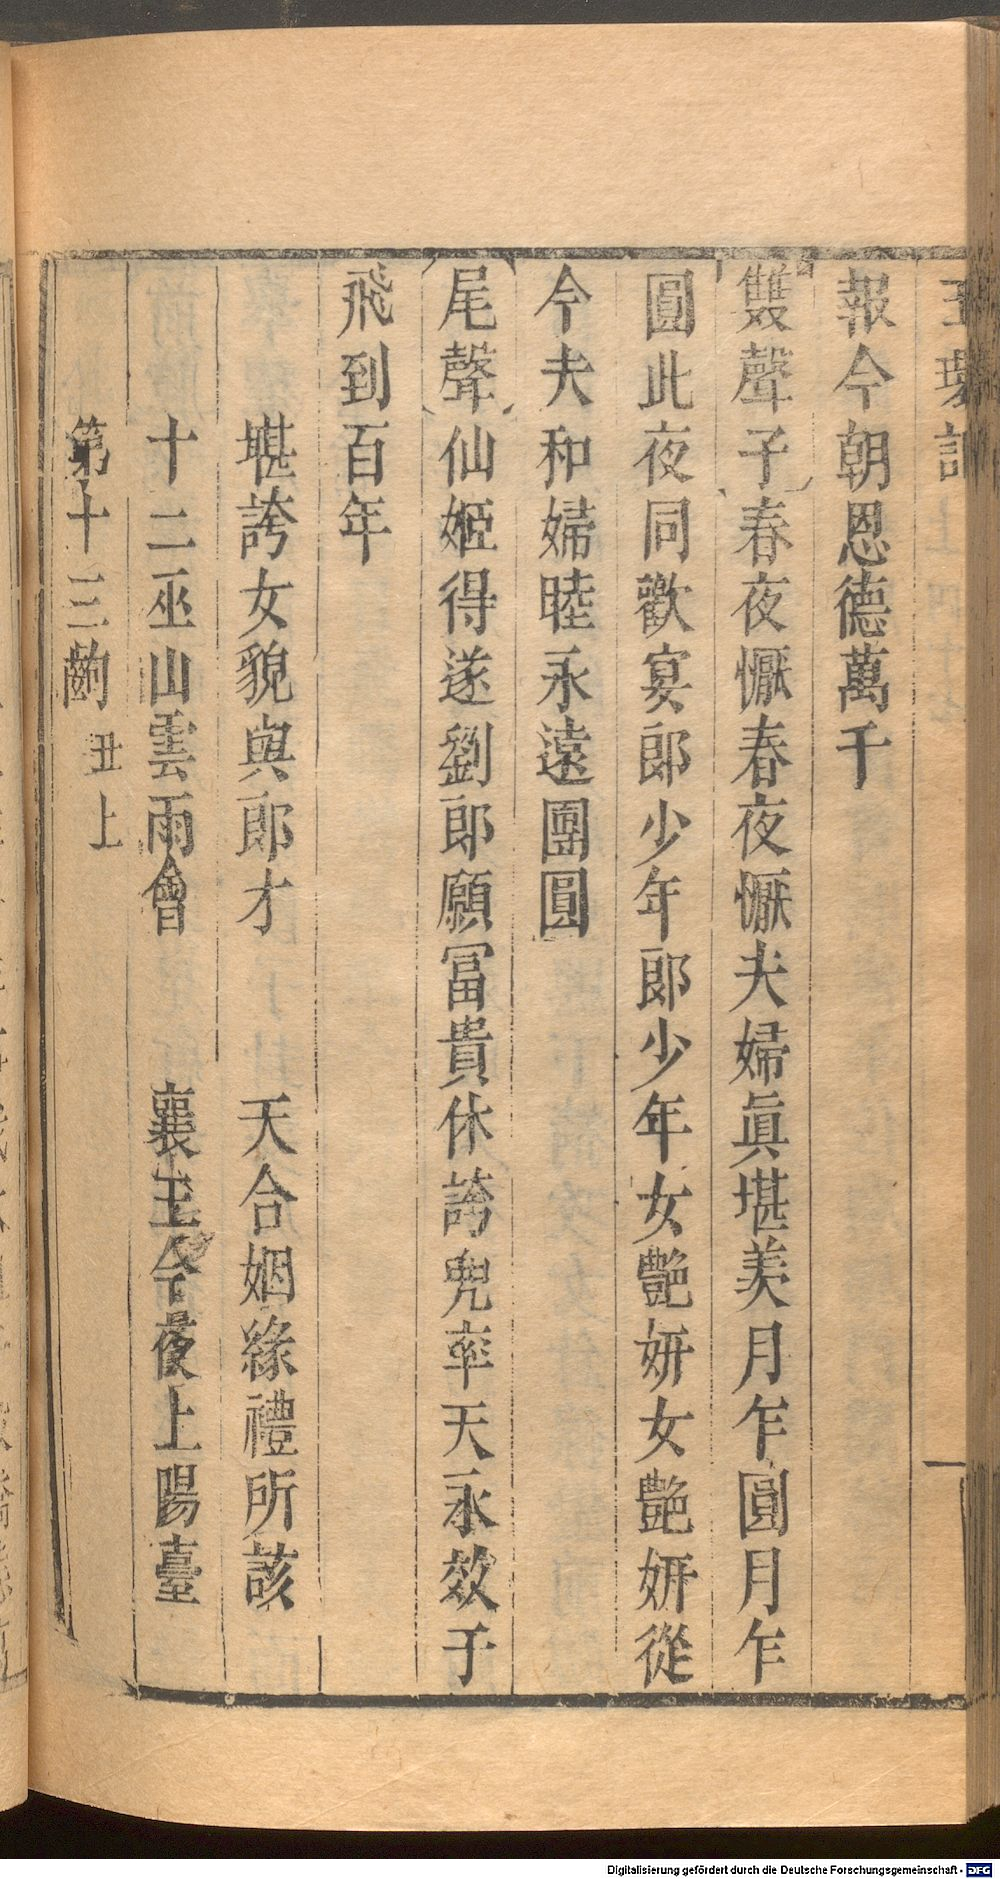 玉環記
報今朝恩德萬千
雙聲子春夜懨春夜懨夫婦眞堪羨月乍圓月乍
圓此夜同歡宴郎少年郎少年女艶妍女艶妍從
今夫和婦睦永遠團圓
尾聲仙姬得遂劉郎願冨貴休誇兜率天永效于
飛到百年
堪誇女貌與郎才 天合姻緣禮所該
十二巫山雲雨會 襄王今夜上陽臺
第十三齣 丑上
Digitalisierung gefördert durch die Deutsche Forschungsgemeinschaft - DFG